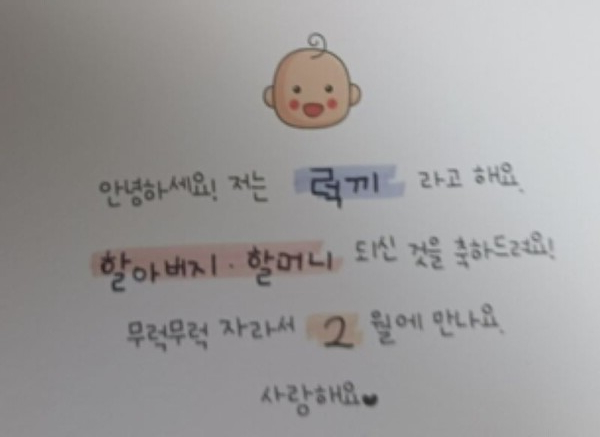 안녕하세요! 저는 럭끼 라고 해요.
할아버지·할머니 되신 것을 축하드려요!
무럭무럭 자라서 2 월에 만나요.
사랑해요♥